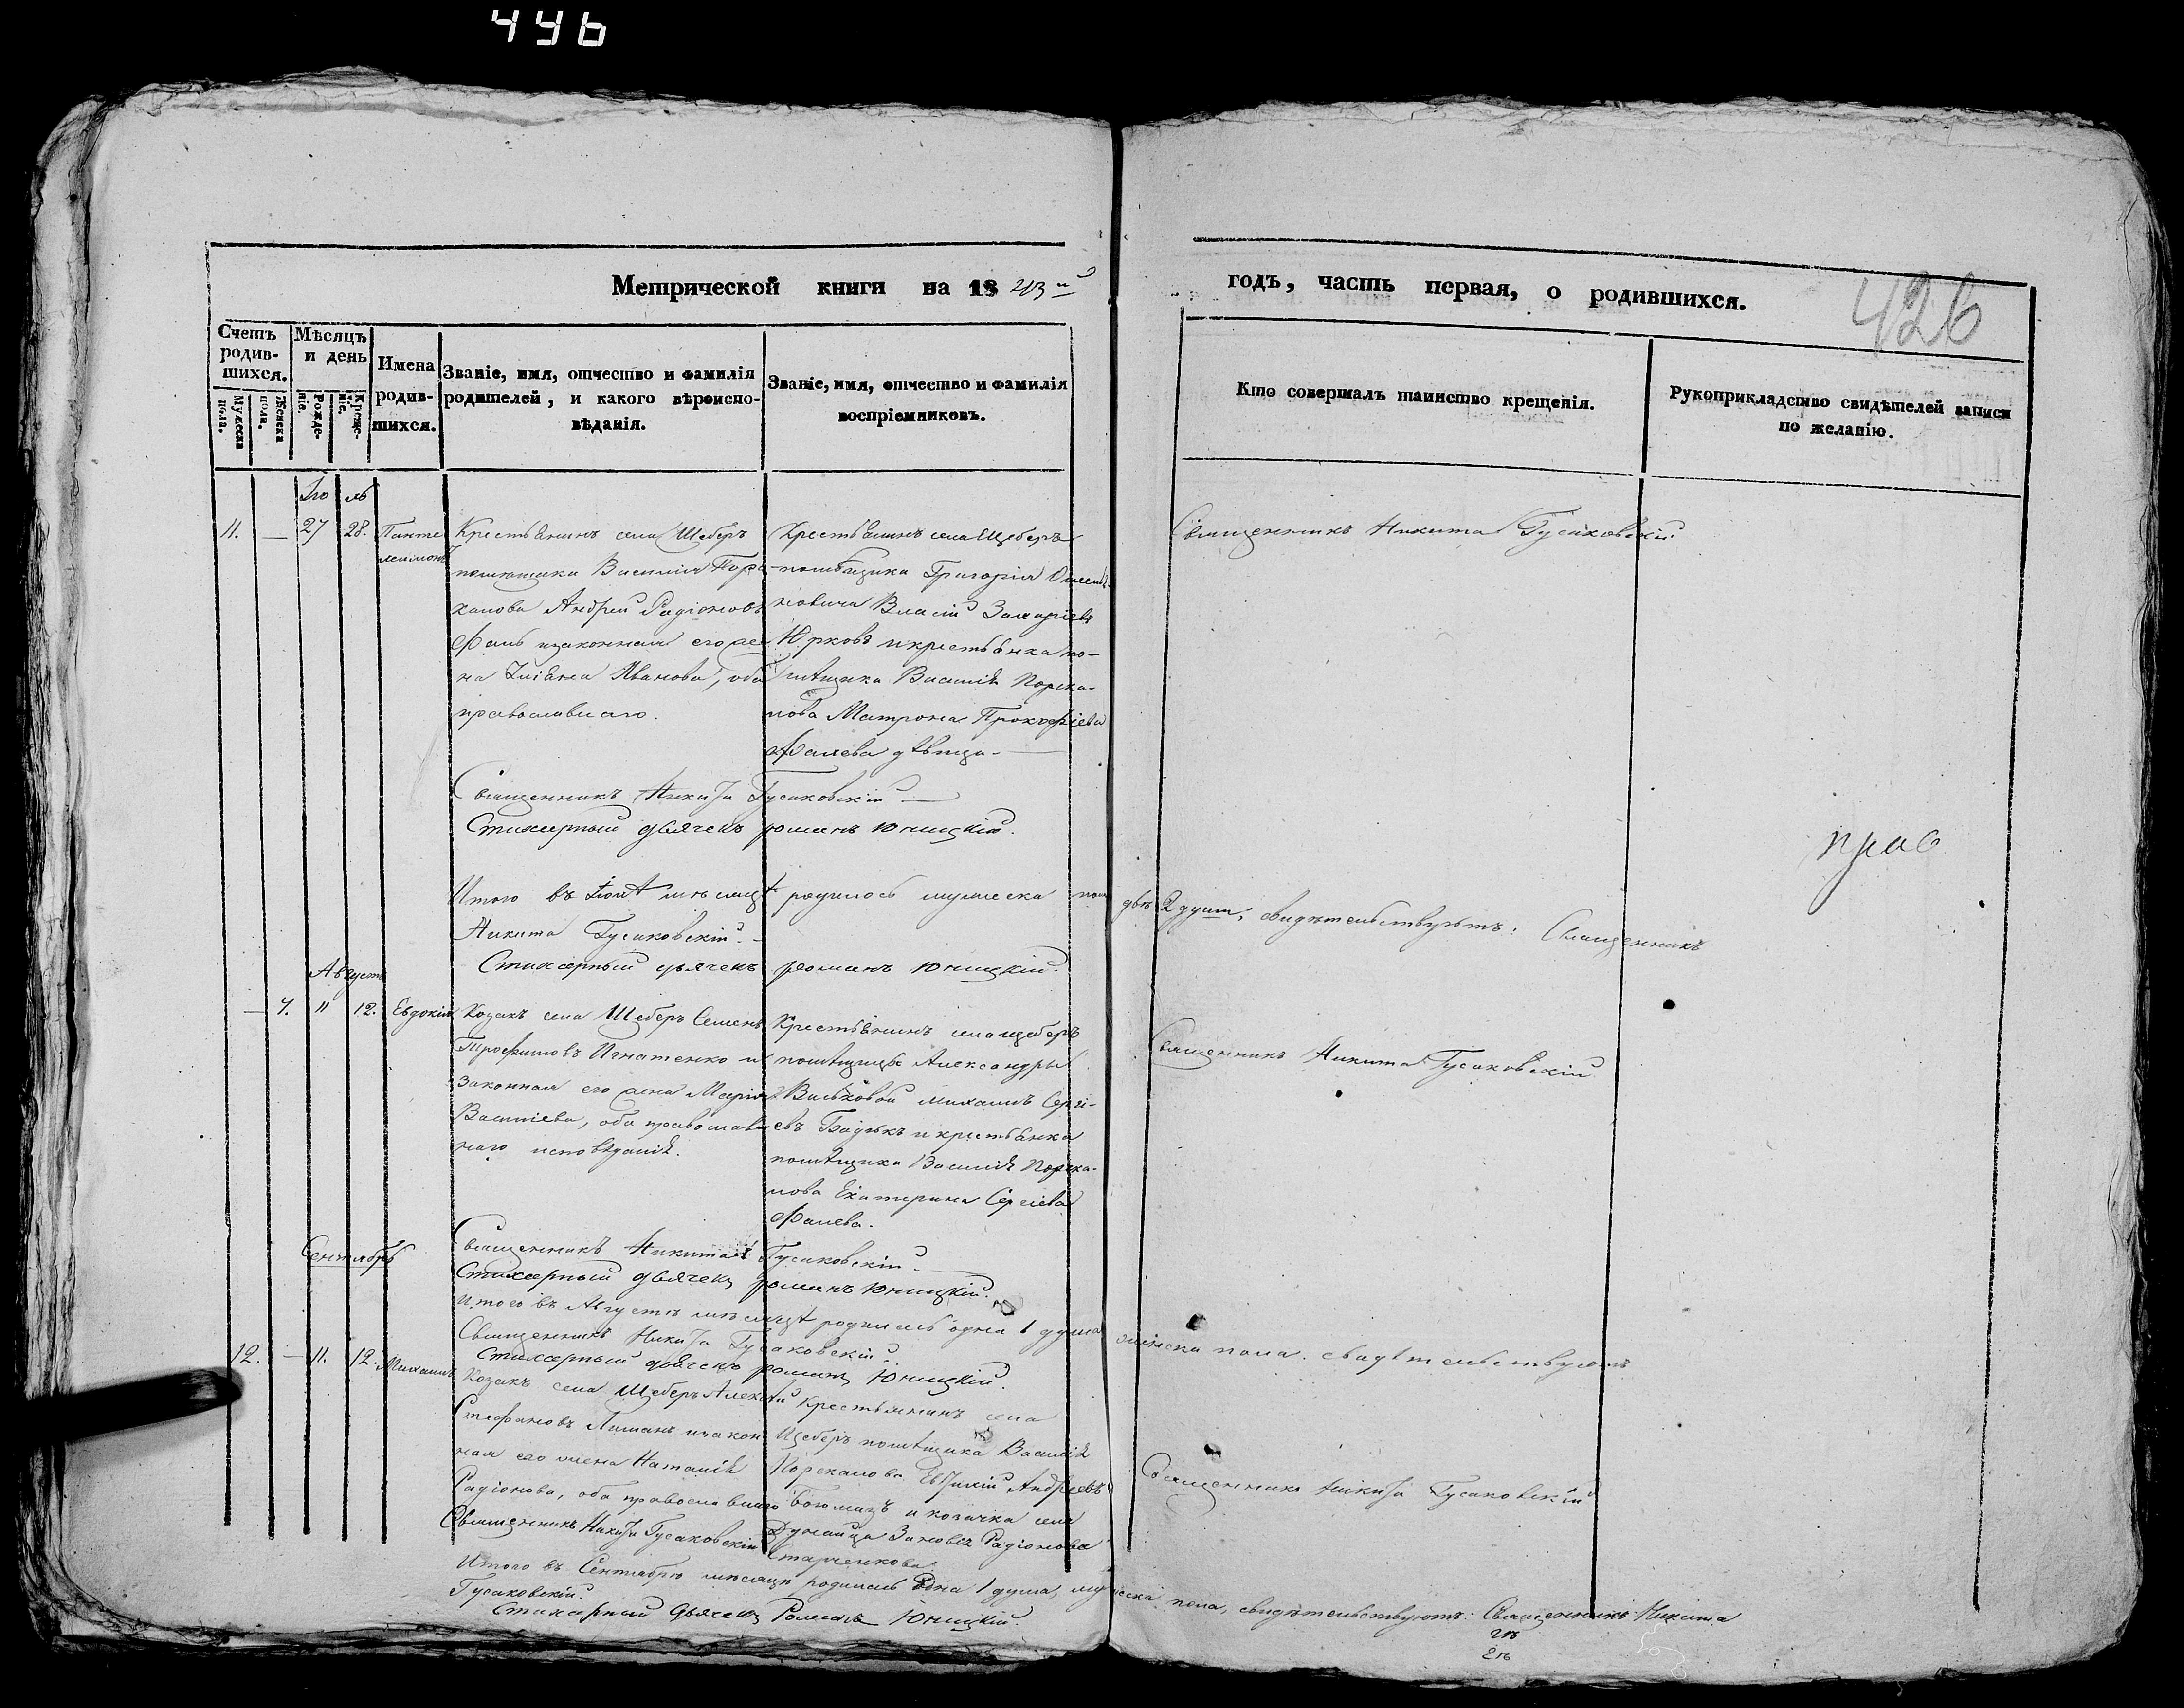 446
Метрической книги на 1843й годъ, часть первая, о родившихся.
426
Счетъ родив-шихся.
Мужеска пола.
Женска пола.
Мѣсяцъ и день
Рожде-ніе.
Креще-ніе.
Имена родив-шихся.
Званіе, имя, отчество и фамилія родителей, и какого вѣроиспо-вѣданія.
Званіе, имя, отчество и фамилія воспріемниковъ.
Кто совершалъ таинство крещенія.
Рукоприкладство свидѣтелей записи по желанію.
Іюль
11. — 27 28. Панте
леимонъ
Крестьянинъ села Щеберъ
помѣщика Василія Поре-
канова Андрей Радіоновъ
Фаль и законная его же-
на Иванова, оба
православнаго.
Крестьянинъ села Щеберъ
помѣщика Григорія
новича Власій Захаріевъ
Юрковъ и крестьянка по-
мѣщика Василія Порека-
нова Матрона Прокофіева
Фалева дѣвица —
Священникъ Никита Гусаковскій
Священникъ Никита Гусаковскій —
Стихарный дьячекъ Романъ Юницкій.
Итого въ Іюлѣ мѣсяцѣ родилось мужеска пола двѣ 2 души, свидѣтельствуютъ: Священникъ
Никита Гусаковскій. —
Стихарный дьячекъ Романъ Юницкій.
Августъ
— 7. 11 12. Евдокія
Козакъ села Щеберъ Семенъ
Трофимовъ Игнатенко и
законная его жена Марія
Василіева, оба православ-
наго исповѣданія.
Крестьянинъ села Щеберъ
помѣщицы Александры
Вильковой Михаилъ Сергі-
евъ и крестьянка
помѣщика Василія Порека-
нова Екатерина Сергіева
Фалева.
Священникъ Никита Гусаковскій
Священникъ Никита Гусаковскій. —
Стихарный дьячекъ Романъ Юницкій.
Итого въ Августѣ мѣсяцѣ родилась одна 1 душа женска пола. свидѣтельствуютъ
Священникъ Никита Гусаковскій
Стихарный дьячекъ Романъ Юницкій.
Сентябрь
12. — 11. 12. Михаилъ
Козакъ села Щеберъ Алексѣй
Стефановъ Лиманъ и закон
ная его жена Наталія
Радіонова, оба православнаго
Крестьянинъ села
Щеберъ помѣщика Василія
Пореканова Евтихій Андреевъ
и козачка села
Дунайца Зановія Радіонова
Старченкова
Священникъ Никита Гусаковскій
Священникъ Никита Гусаковскій
Итого въ Сентябрѣ мѣсяцѣ родилась одна 1 душа, мужеска пола, свидѣтельствуютъ: Священникъ Никита
Гусаковскій.
Стихарный дьячекъ Романъ Юницкій.